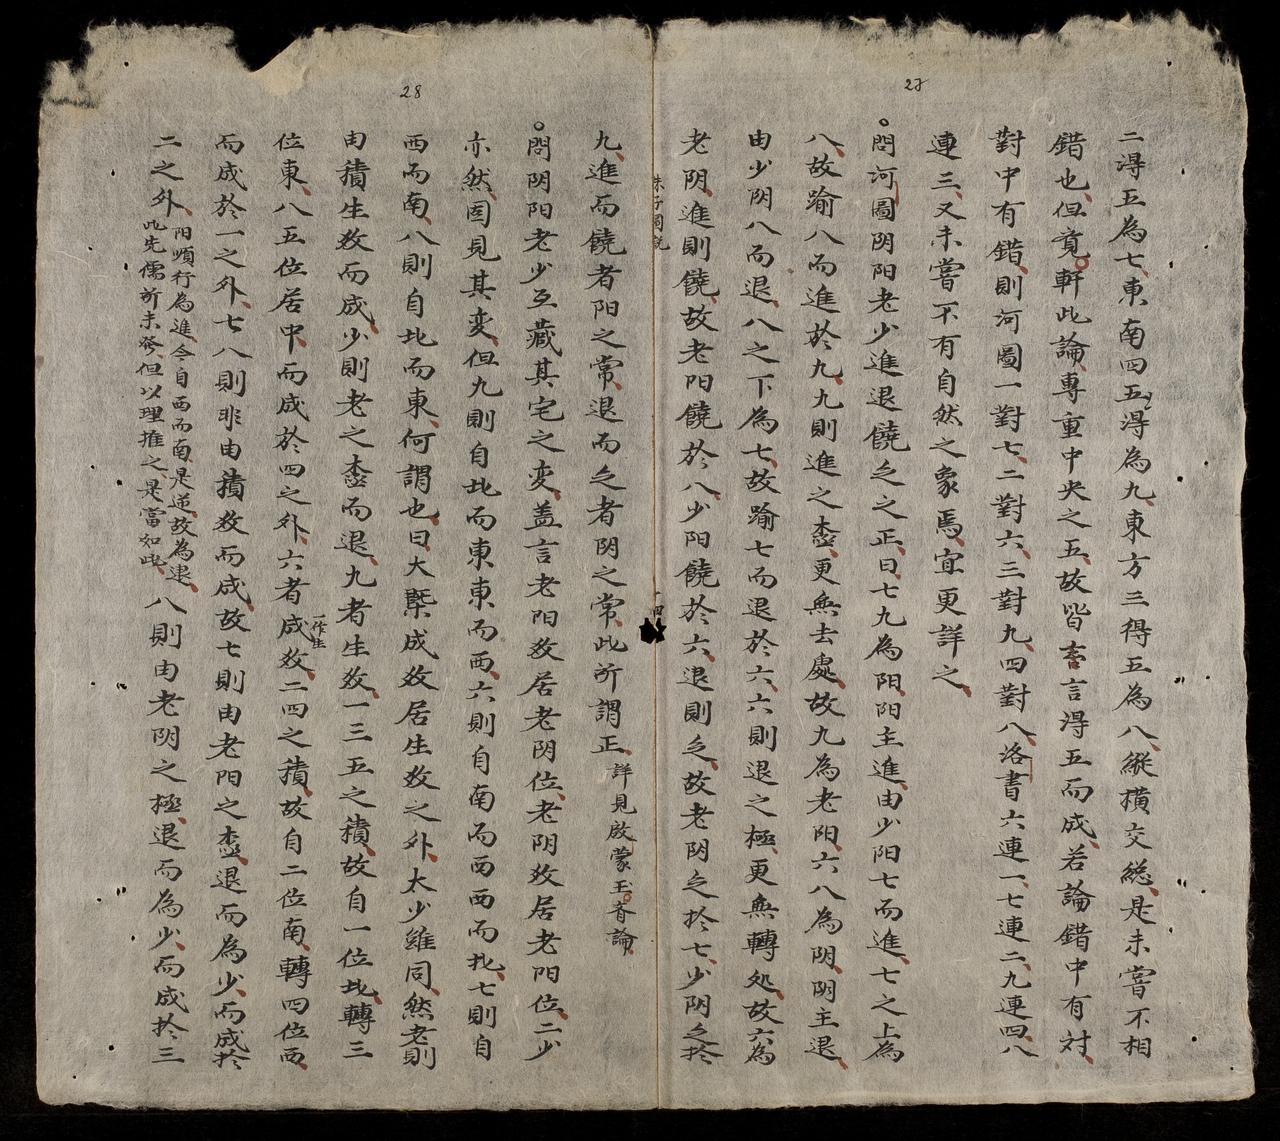 27
二得五為七、東南四五得為九、東方三得五為八、縱橫交總、是未嘗不相
錯也、但竟軒此論、專重中央之五、故皆言得五而成、若論錯中有対、
對中有錯、則河圖一對七、二對六、三對九、四對八、洛書六連一、七連二、九連四、八
連三、又未嘗不有自然之象焉、宜更詳之、
問河圖阴阳老少進退饒乏之正、曰七九為阳、阳主進、由少阳七而進、七之上為
八、故踰八而進於九、九則進之極、更無去處、故九為老阳、六八為阴、阴主退、
由少阴八而退、八之下為七、故踰七而退於六、六則退之極、更無轉処、故六為
老阴、進則饒、故老阳饒於八、少阳饒於六、退則乏、故老阴乏於七、少阴乏於
朱子圖説
十四
28
九、進而饒者阳之常、退而乏者阴之常、此所謂正、詳見啟蒙玉斎論、
問阴阳老少互藏其宅之变、盖言老阳敉居老阴位、老阴敉居老阳位、二少
亦然、固見其变、但九則自北而東、東而西、六則自南而西、西而北、七則自
西而南、八則自北而東、何謂也、曰、大槩成敉居生敉之外、太少雖同、然老則
由積生敉而成、少則老之極而退、九者生敉、一三五之積、故自一位北、轉三
位東、八五位居中、而成於四之外、六者成敉、二四之積、故自二位南、轉四位西、
一作生
而成於一之外、七八則非由積敉而成、故七則由老阳之極、退而為少、而成於
二之外、阳順行為進、今自西而南、是逆、故為退、
此先儒所未発、但以理推之、是當如此、八則由老阴之極、退而為少、而成於三